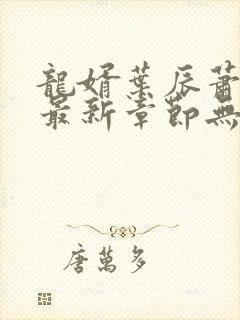 龍婿葉辰蕭
最新章節無
唐萬多